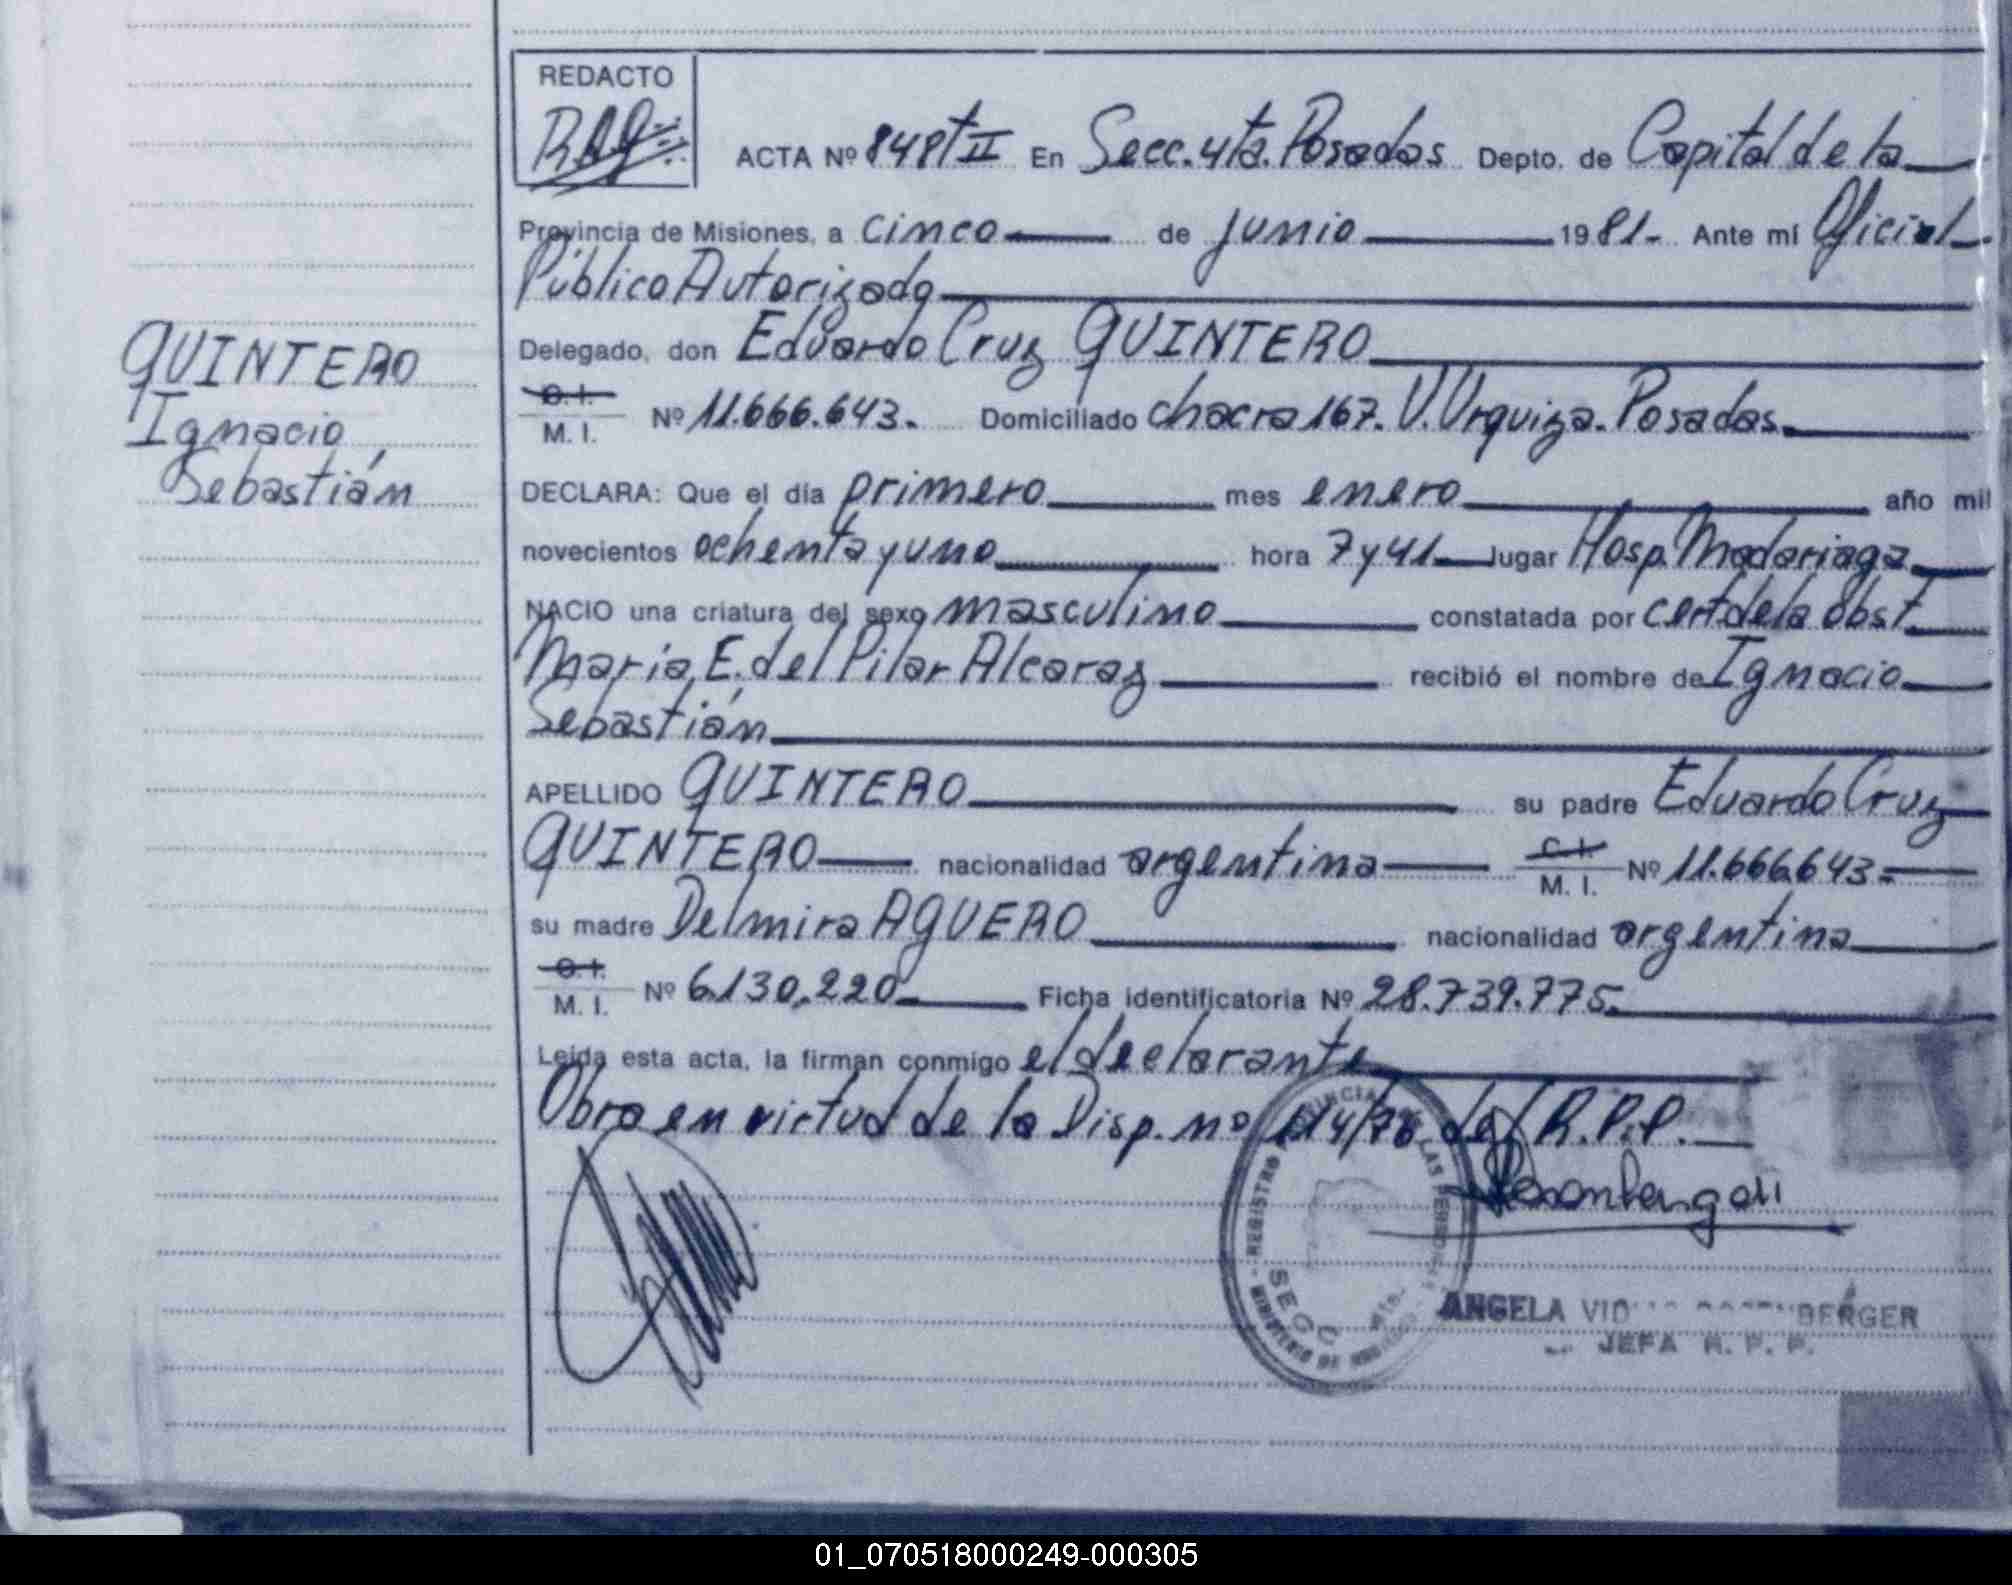 REDACTO
ACTA Nº 848 tº II En Secc. 4ta. Posadas Depto. de Capital de la
Provincia de Misiones, a cinco de junio 1981.- Ante mí Oficial
Público Autorizado
QUINTERO
Ignacio
Sebastián
Delegado, don Eduardo Cruz QUINTERO
C. I.
M. I. Nº 11.666.643. Domiciliado chacra 167. V. Urquiza. Posadas.
DECLARA: Que el día primero mes enero año mil
novecientos ochenta y uno hora 7 y 41 lugar Hosp. Madariaga
NACIO una criatura del sexo masculino constatada por cert de la Obst.
María E. del Pilar Alcaraz recibió el nombre de Ignacio
Sebastián
APELLIDO QUINTERO su padre Eduardo Cruz
QUINTERO nacionalidad argentina C. I. M. I. Nº 11.666.643.-
su madre Delmira AGUERO nacionalidad argentina
C. I.
M. I. Nº 6.130.220 Ficha identificatoria Nº 28.739.775.
Leída esta acta, la firman conmigo el declarante
Obra en virtud de la Disp. nº 114/78 del R.P.P.
REGISTRO PROVINCIAL DE LAS PERSONAS
MINISTERIO DE
SECC
ANGELA BERGER
JEFA R. P. P.
01_070518000249-000305